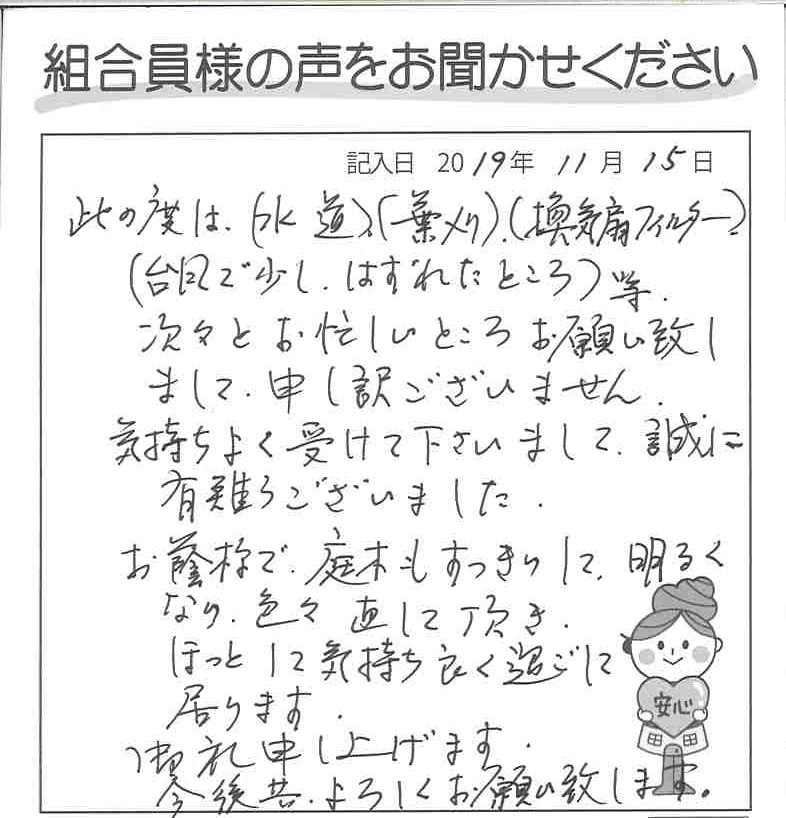 組合員様の声をお聞かせください
記入日 2019年 11月 15日
此の度は、(水道)、(葉刈)、(換気扇フィルター)、
(台風で少し、はずれたところ)等、
次々とお忙しいところお願い致し
まして、申し訳ございません。
気持ちよく受けて下さいまして、誠に
有難うございました。
お蔭様で、庭木もすっきりして、明るく
なり、色々直して頂き、
ほっとして気持ち良く過ごして
居ります。
御礼申し上げます。
今後共、よろしくお願い致します。
安心